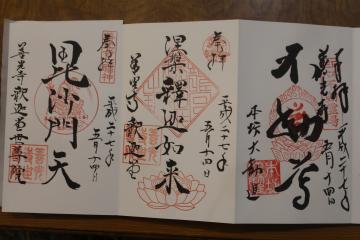 奉拝
善光寺
平成二十七年
五月十四日
不動尊
本坊大勧進
奉拝
平成二十七年
五月十四日
涅槃釋迦如来
善光寺釈迦堂
奉拝
平成二十七年
五月十四日
毘沙門天
善光寺釈迦堂世尊院